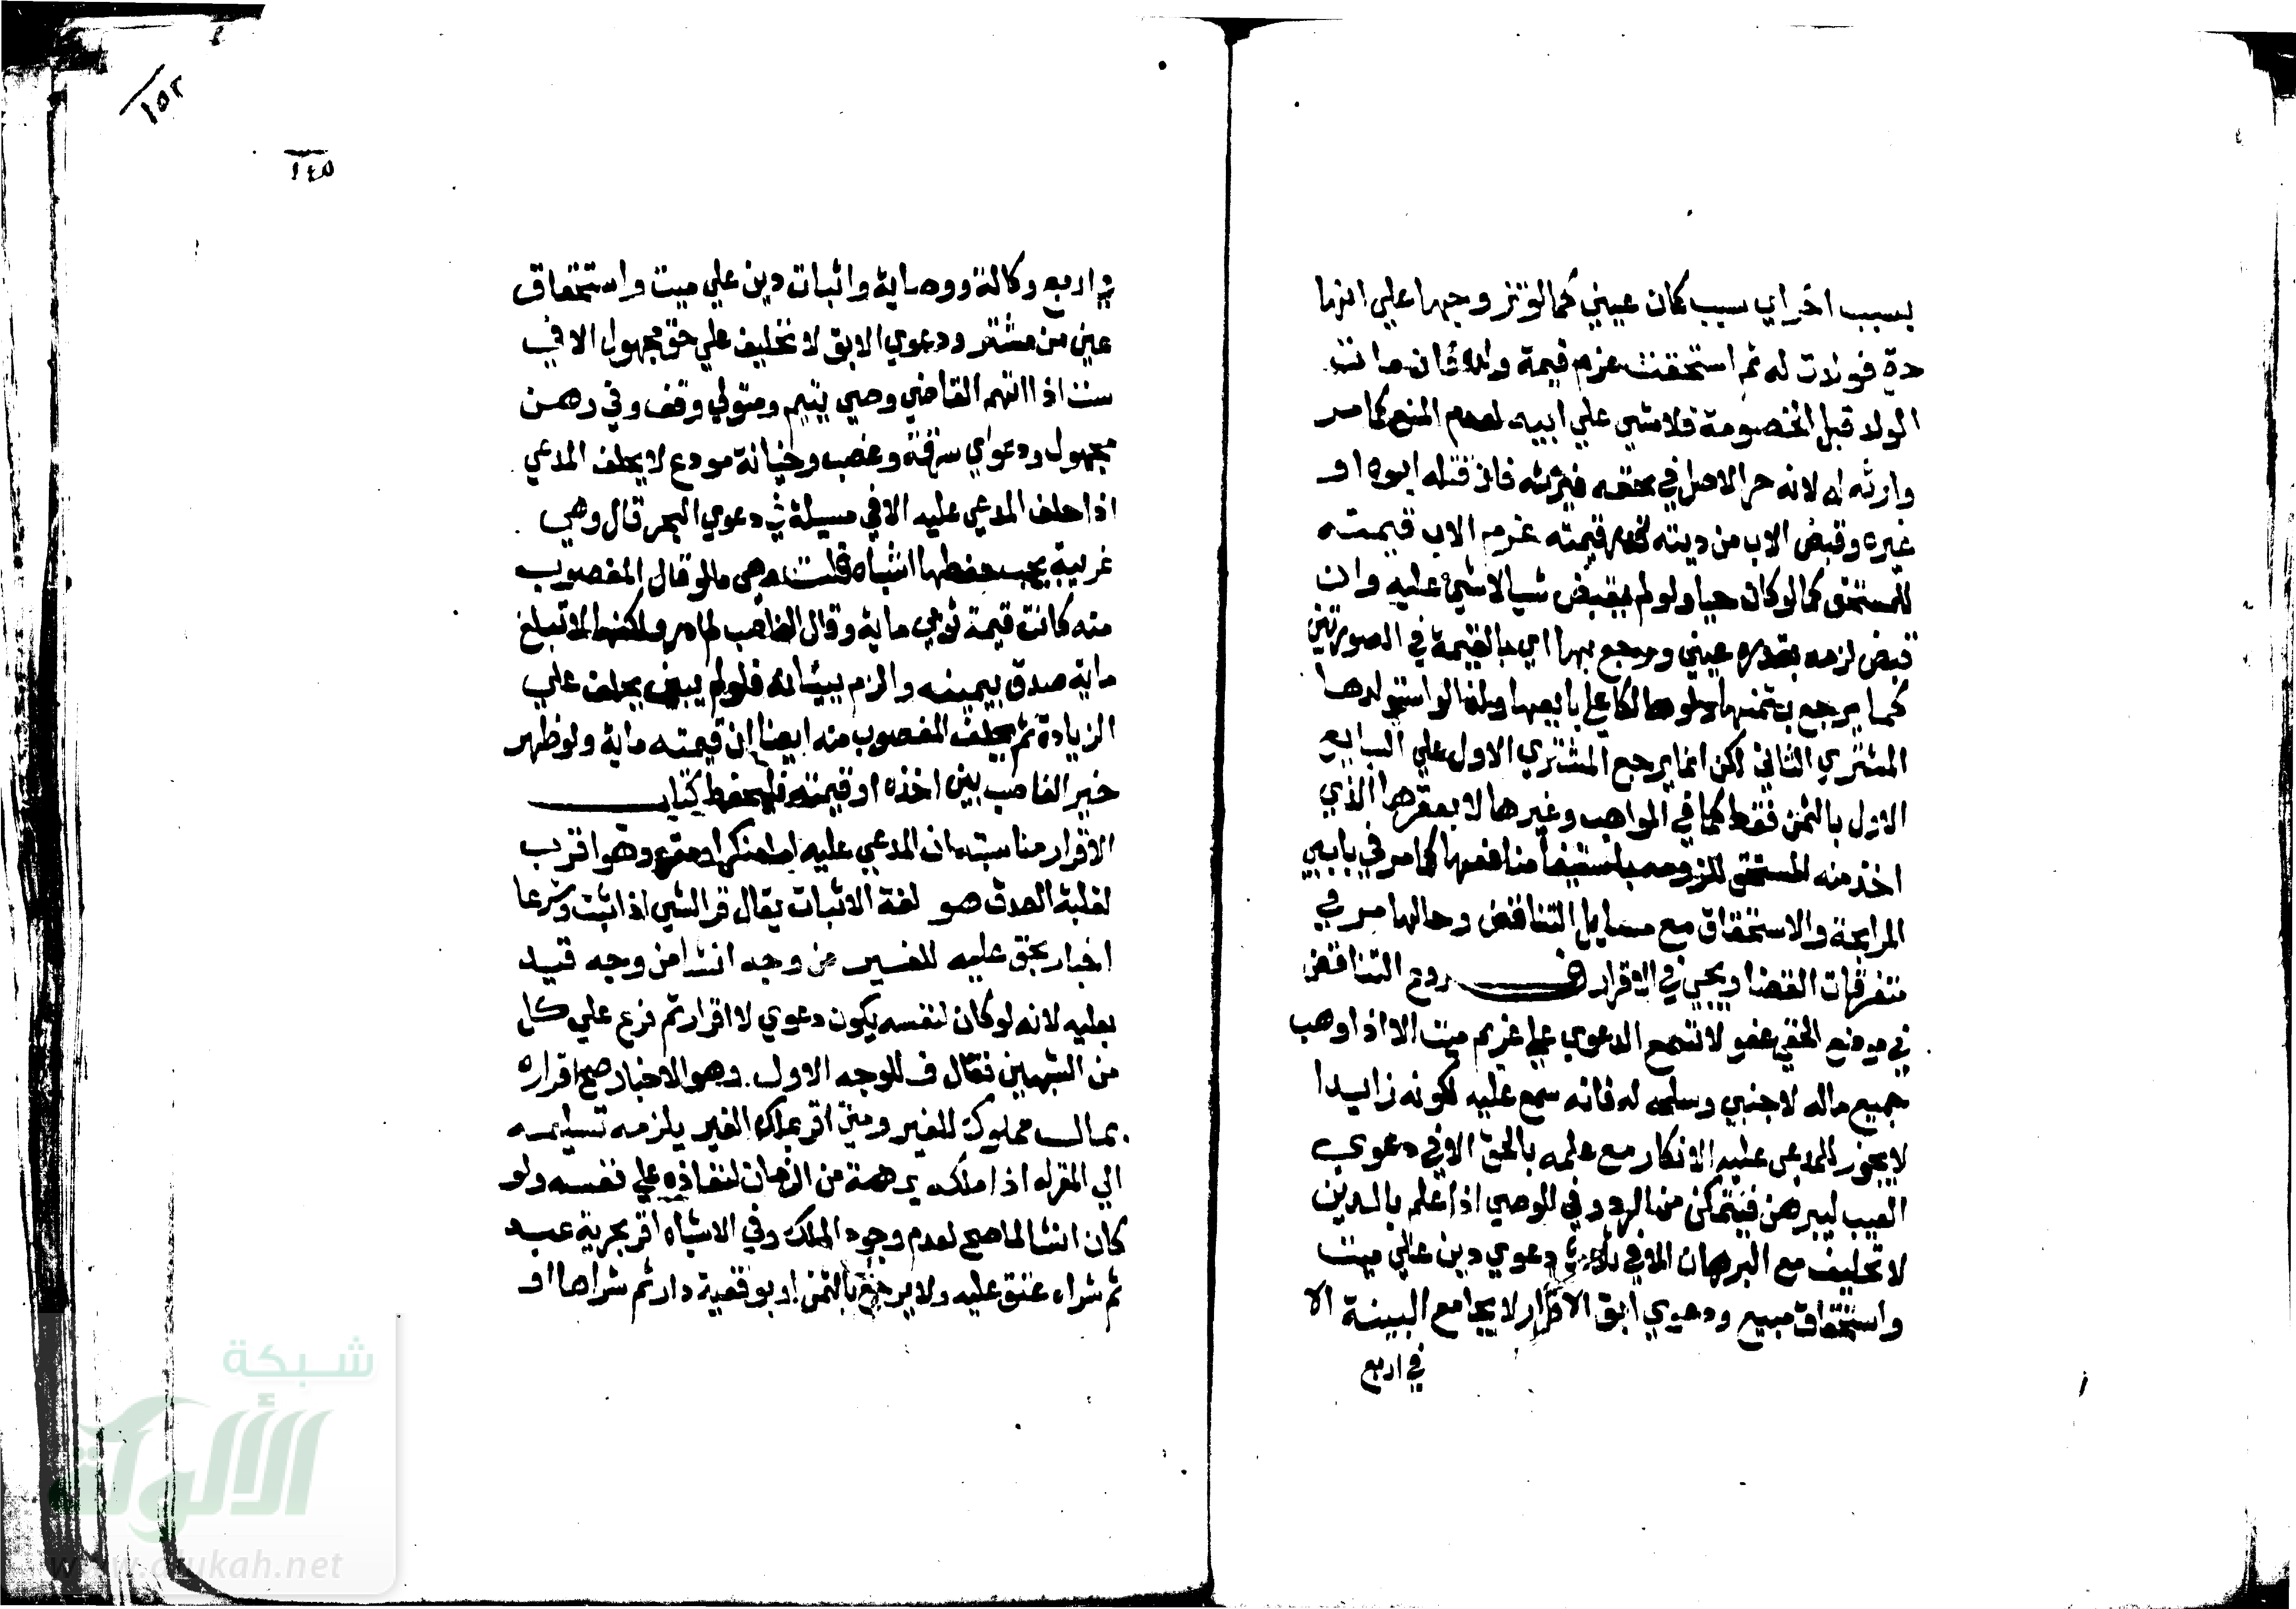 بسبب اخر اي سبب كان عيني كما لو تزوجها علي انها
حرة فولدت له ثم استحقت غرم قيمة ولده فان مات
الولد قبل الخصومة فلا شي علي ابيه لعدم المنع كما مر
وارثه له لانه حر الاصل في حقه فيرثه فان قتله ابوه او
غيره وقبض الاب من ديته قدر قيمته غرم الاب قيمته
للمستحق كما لو كان حيا ولو لم يقبض شيا لا شي عليه وان
قبض لزمه بقدره عيني ورجع بها اي بالقيمة في الصورتين
كما يرجع بثمنها ولو هالكا علي بايعها وكذا لو استولدها
المشتري الثاني لكن انما يرجع المشتري الاول علي البايع
الاول بالثمن فقط كما في المواهب وغيرها لا بعقرها الذي
اخذ منه المستحق للزومه باستيفا منافعها كما مر في بابي
المرابحة والاستحقاق مع مسايل التناقض وحالها مر في
متفرقات القضا ويجي في الاقرار فروع التناقض
في موضع الخفي عفو لا تسمع الدعوي علي غريم ميت الا اذا وهب
جميع ماله لاجنبي وسلمه له فانه سمع عليه لكونه زايدا
لا يجوز للمدعي عليه الانكار مع علمه بالحق الا في دعوي
العيب ليبرهن فيتمكن من الرد وفي الوصي اذا علم بالدين
لا تحليف مع البرهان الا في ثلاث دعوي دين علي ميت
واستحقاق مبيع ودعوي ابق الاقرار لا يجامع البينة الا
في اربع
١٥٢
١٤٥
في اربع وكالة ووصاية واثبات دين علي ميت واستحقاق
عين من مشتر ودعوي الابق لا تحليف علي حق مجهول الا في
ست اذا اتهم القاضي وصي يتيم ومتولي وقف وفي رهن
مجهول ودعوي سرقة وغصب وخيانة مودع لا يحلف المدعي
اذا حلف المدعي عليه الا في مسيلة في دعوي البحر قال وهي
غريبة يجب حفظها اشباه قلت وهي ما لو قال المغصوب
منه كانت قيمة ثوبي ماية وقال الغاصب لم ادر ولكنها لا تبلغ
ماية صدق بيمينه والزم ببيانه فلو لم يبين يحلف علي
الزيادة ثم يحلف المغصوب منه ايضا ان قيمته ماية ولو ظهر
خير الغاصب بين اخذه او قيمته فليحفظ كتاب
الاقرار مناسبته ان المدعي عليه اما منكر او مقر وهو اقرب
لغلبة الصدق هو لغة الاثبات يقال قر الشي اذا ثبت وشرعا
اخبار بحق عليه للغير من وجه انشا من وجه قيد
بعليه لانه لو كان لنفسه يكون دعوي لا اقرار ثم فرع علي كل
من الشبهين فقال ف للوجه الاول وهو الاخبار صح اقراره
بمال مملوك للغير ومتي اقر بملك الغير يلزمه تسليمه
الي المقر له اذا ملكه برهة من الزمان لنفاذه علي نفسه ولو
كان انشا لما صح لعدم وجود الملك وفي الاشباه اقر بحرية عبد
ثم شراه عتق عليه ولا يرجع بالثمن او بوقفية دار ثم شراها او
شبكة
الألوكة
www.alukah.net